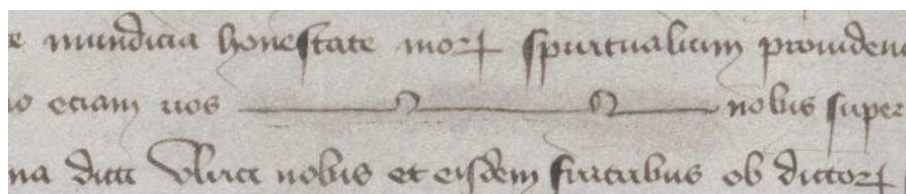 e mundicia honestate moꝝ spiritualium prouidenc
o eciam uos nobis super
na dicte Vlrice nobis et eisdem fratribus ob dictoꝝ